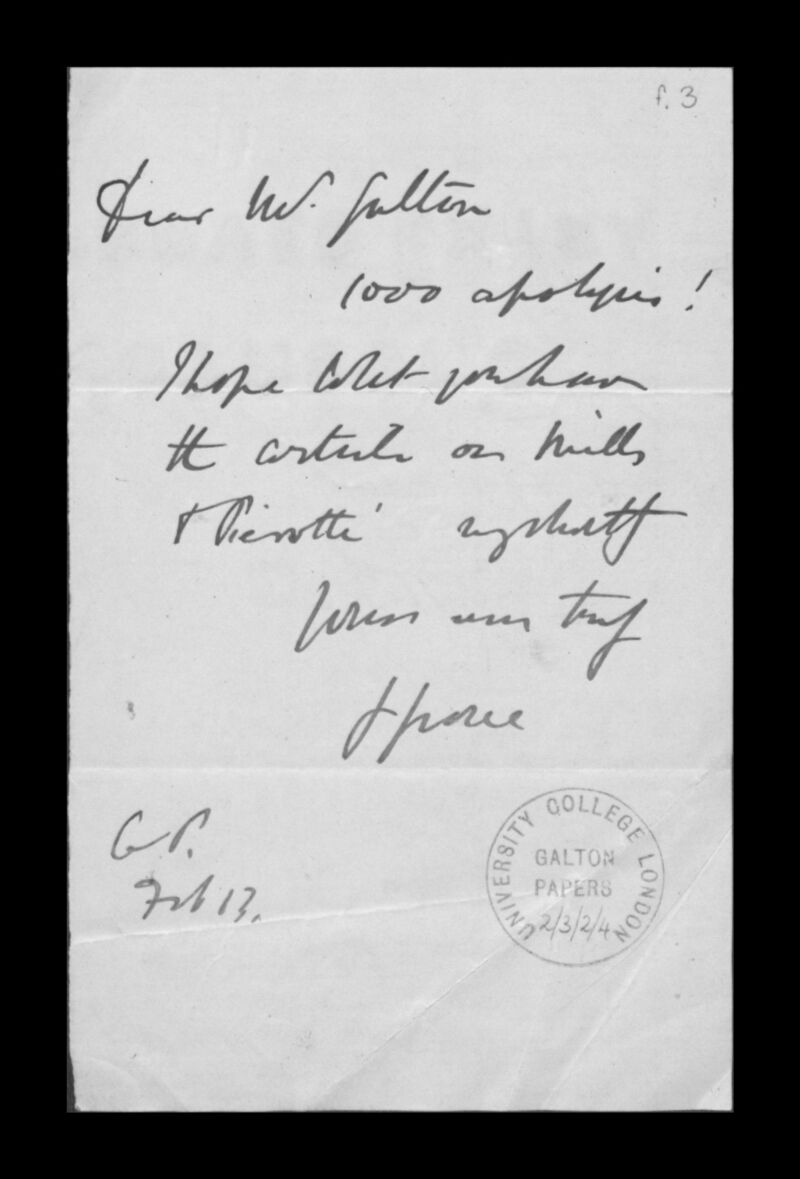 f. 3
Dear Mr. Galton
1000 apologies!
I hope that you have
the article on Mills
& Pierotti
Yours very truly
G Grove
G.P.
Feb 13.
UNIVERSITY COLLEGE LONDON
GALTON
PAPERS
2/3/2/4